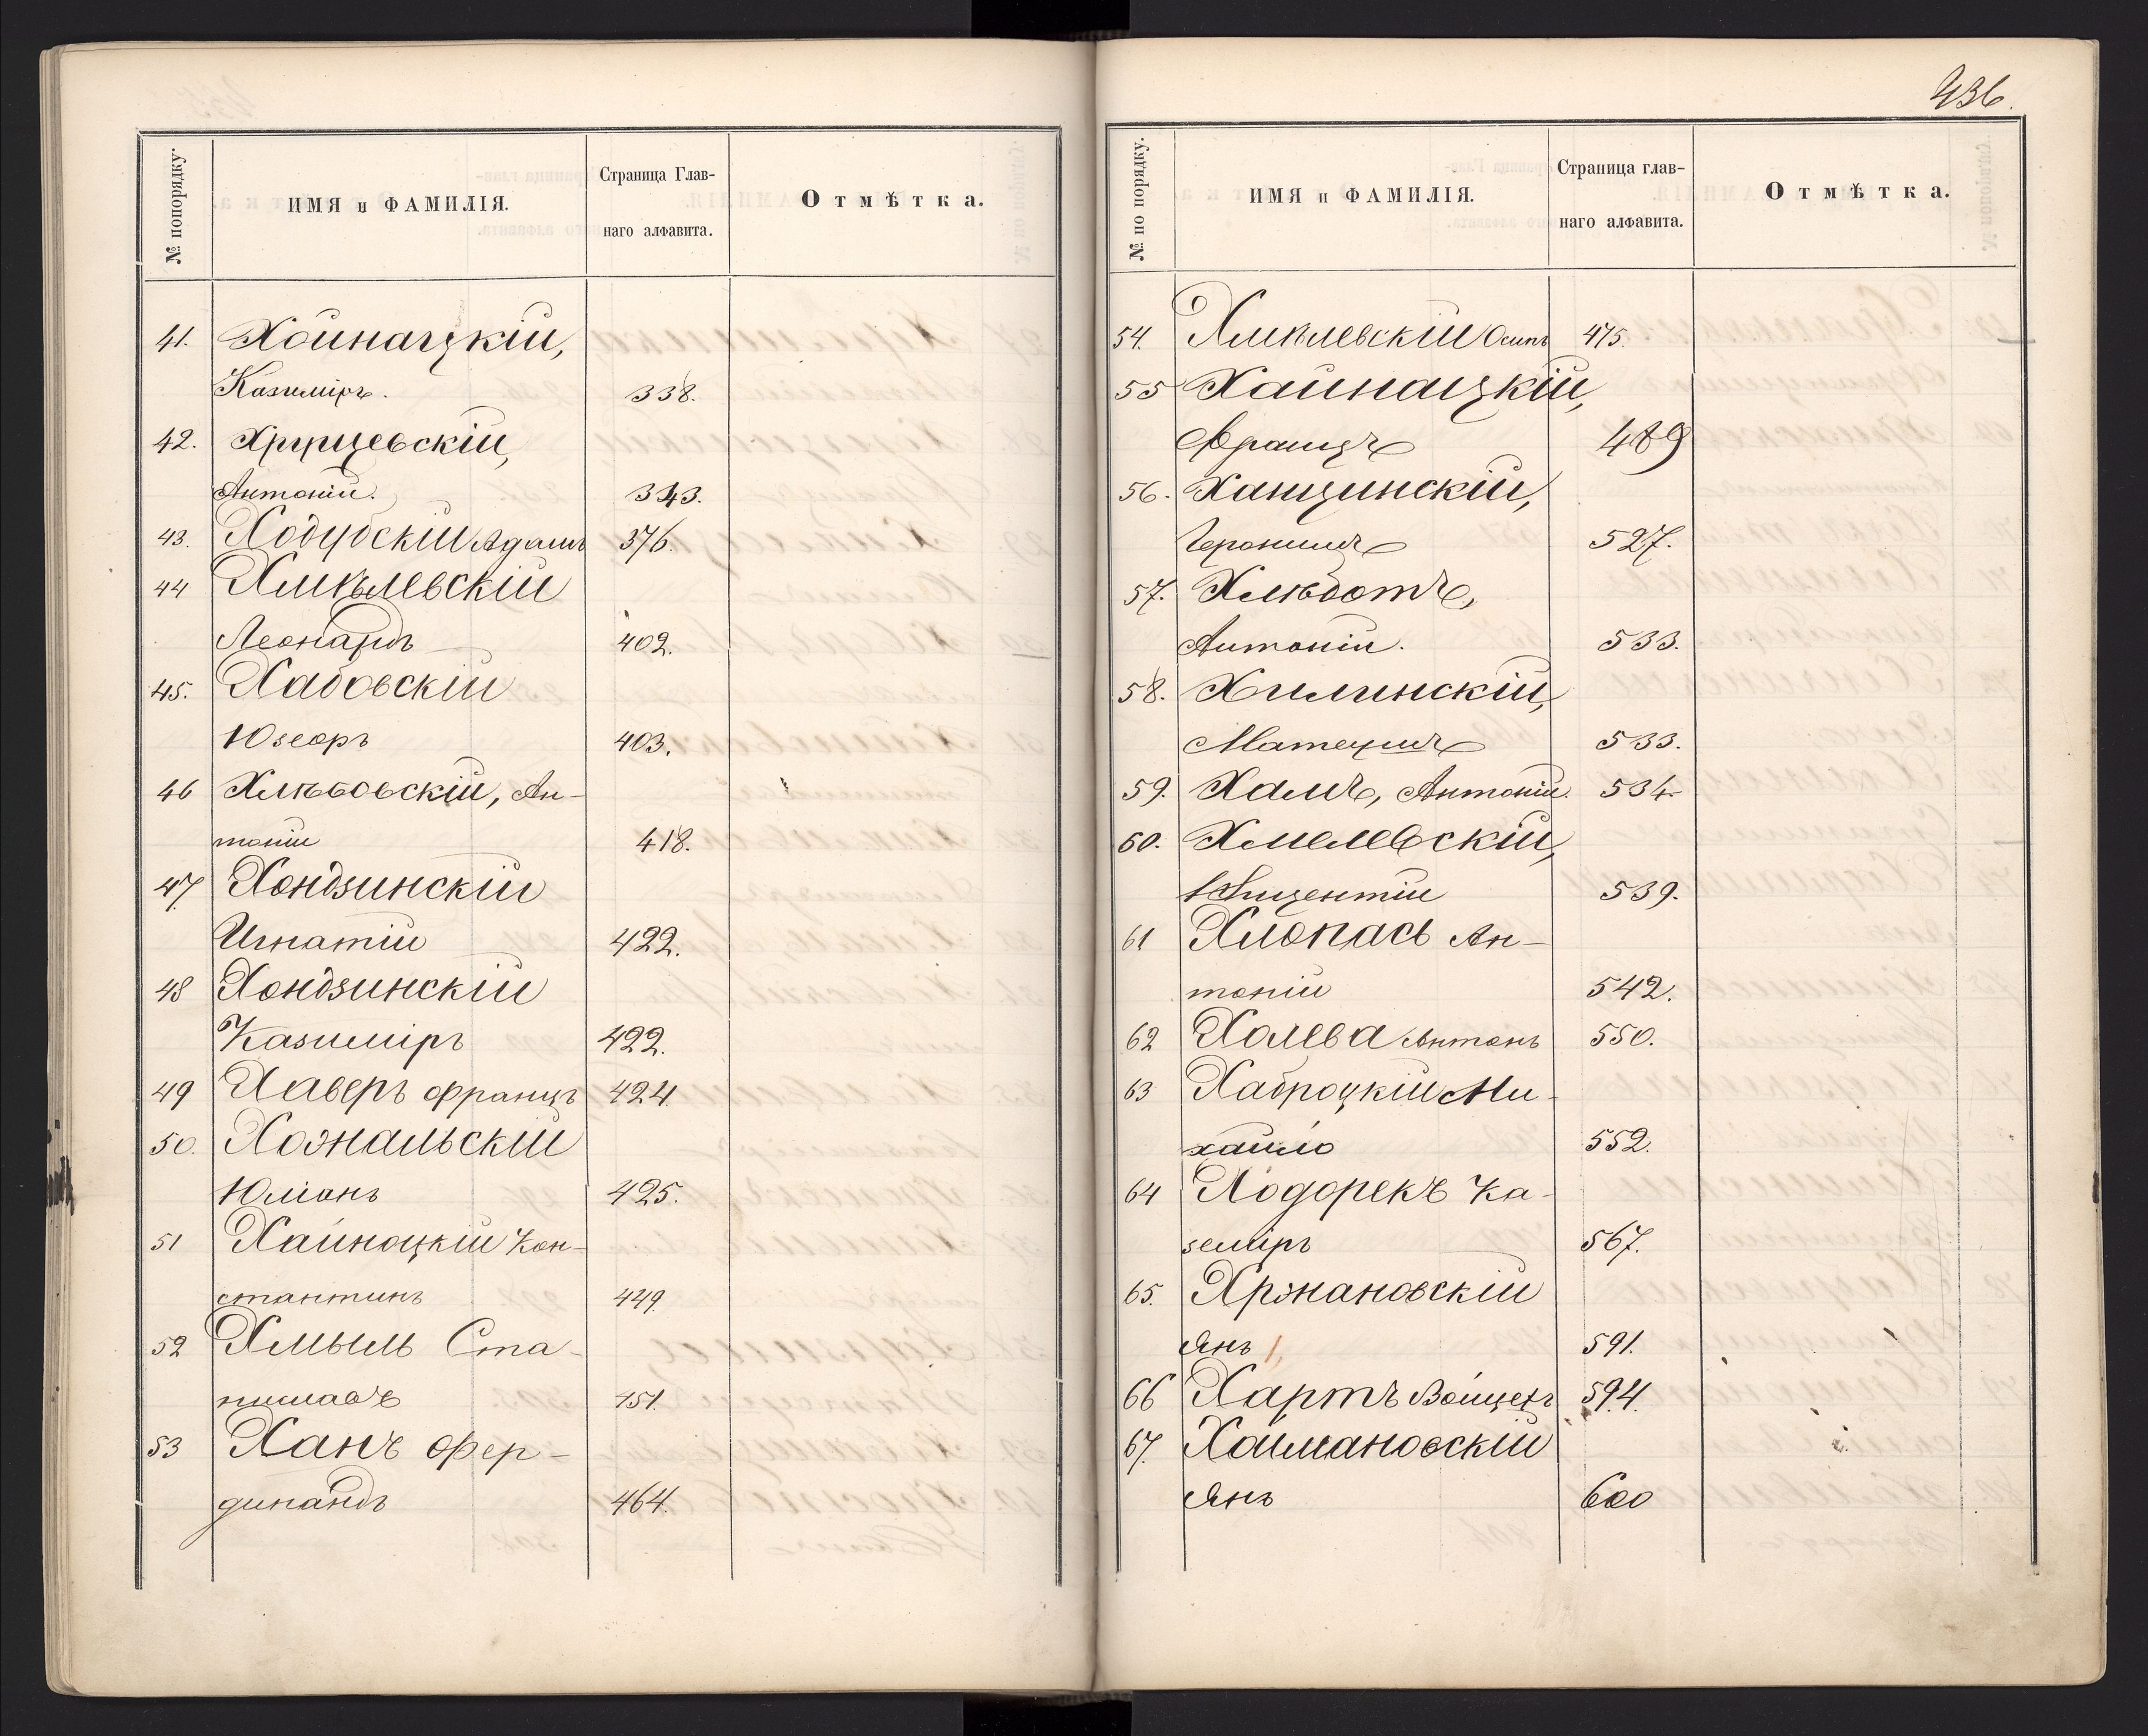 № попорядку.
ИМЯ и ФАМИЛІЯ.
Страница Глав-
наго алфавита.
Отмѣтка.
41. Хойнацкій,
Казиміръ. 338.
42. Хрущевскій,
Антоній. 343.
43. Адамъ 376.
44 Хмѣлевскій
Леонардъ 402.
45. Хабовскій
Юзефъ 403.
46 Хлѣбовскій, Ан-
тоній 418.
47 Хондзинскій
Игнатій 422.
48 Хондзинскій
Казиміръ 422.
49 Хаверъ Францъ 424.
50. Хожальскій
Юліанъ 425.
51 Хайнацкій Кон-
стантинъ 449
52 Хмыль Ста-
ниславъ 451.
53 Ханъ Фер-
динандъ 464.
436.
№ по порядку.
ИМЯ и ФАМИЛІЯ.
Страница глав-
наго алфавита.
Отмѣтка.
54. Хмѣлевскій Осипъ 475.
55 Хайнацкій,
Францъ 489
56. Ханцинскій,
Геронимъ 527.
57. Хлѣботъ,
Антоній. 533.
58. Хилинскій,
Матеушъ 533.
59. Хамъ, Антоній. 534.
60. Хмелевскій,
Винцентій 539.
61 Хлопась Ан-
тоній 542.
62 Холева Антонъ 550.
63 Хаброцкій Ми-
хайло 552.
64 Ходорекъ Ка-
земіръ 567.
65. Хржановскій
Янъ 591.
66 Хартъ Войцехъ 594.
67. Хаймановскій
Янъ 600